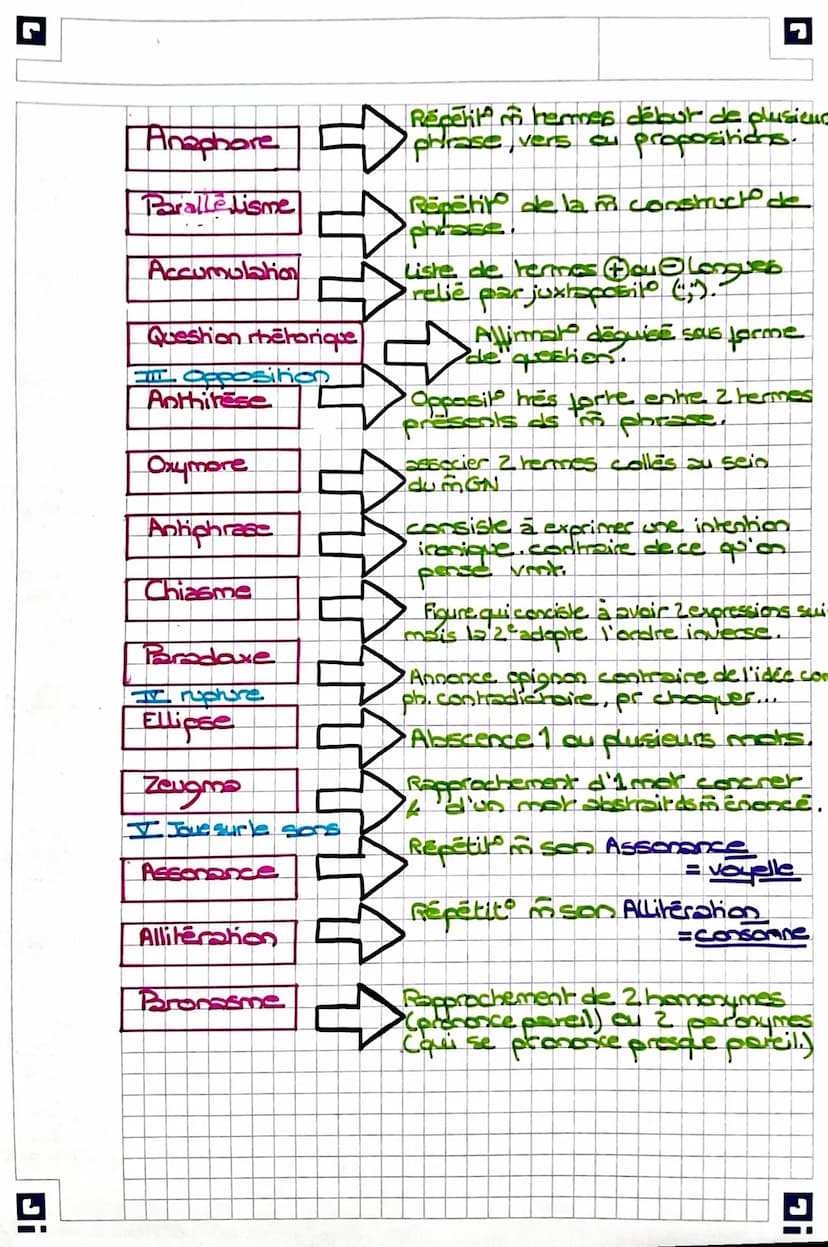 Anaphore
Répétit° m̂ termes début de plusieurs
phrase, vers ou propositions.
Parallélisme
Répétit° de la m̂ construct° de
phrase.
Accumulation
Liste de termes ⊕ ou ⊖ longues
relié par juxtaposit° (,;).
Question rhétorique
Affirmat° déguisé sous forme
de question.
III Opposition
Anthitèse
Opposit° très forte entre 2 termes
présents ds m̂ phrase.
Oxymore
associer 2 termes collés au sein
du m̂ GN
Antiphrase
consiste à exprimer une intention
ironique. contraire de ce qu'on
pense vmt.
Chiasme
Figure qui conciste à avoir 2 expressions sui
mais la 2e adopte l'ordre inverse.
Paradoxe
Annonce opignon contraire de l'idée com
ph. contradictoire, pr choquer...
IV rupture
Ellipse
Abscence 1 ou plusieurs mots.
Zeugma
Rapprochement d'1 mot concret
& d'un mot abstrait ds m̂ énoncé.
V Joue sur le sons
Assonance
Répétit° m̂ son Assonance
= voyelle
Allitération
Répétit° m̂ son Allitération
= consonne
Paronasme
Rapprochement de 2 homonymes
(prononce pareil) ou 2 paronymes
(qui se prononce presque pareil.)